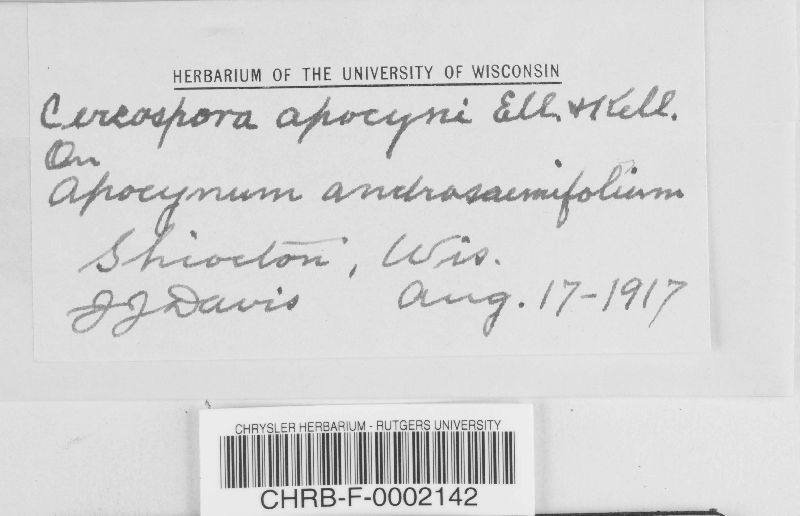 HERBARIUM OF THE UNIVERSITY OF WISCONSIN
Cercospora apocyni Ell. & Kell.
On
Apocynum androsaemifolium
Shiocton, Wis.
JJ Davis Aug. 17-1917
CHRYSLER HERBARIUM - RUTGERS UNIVERSITY
CHRB-F-0002142